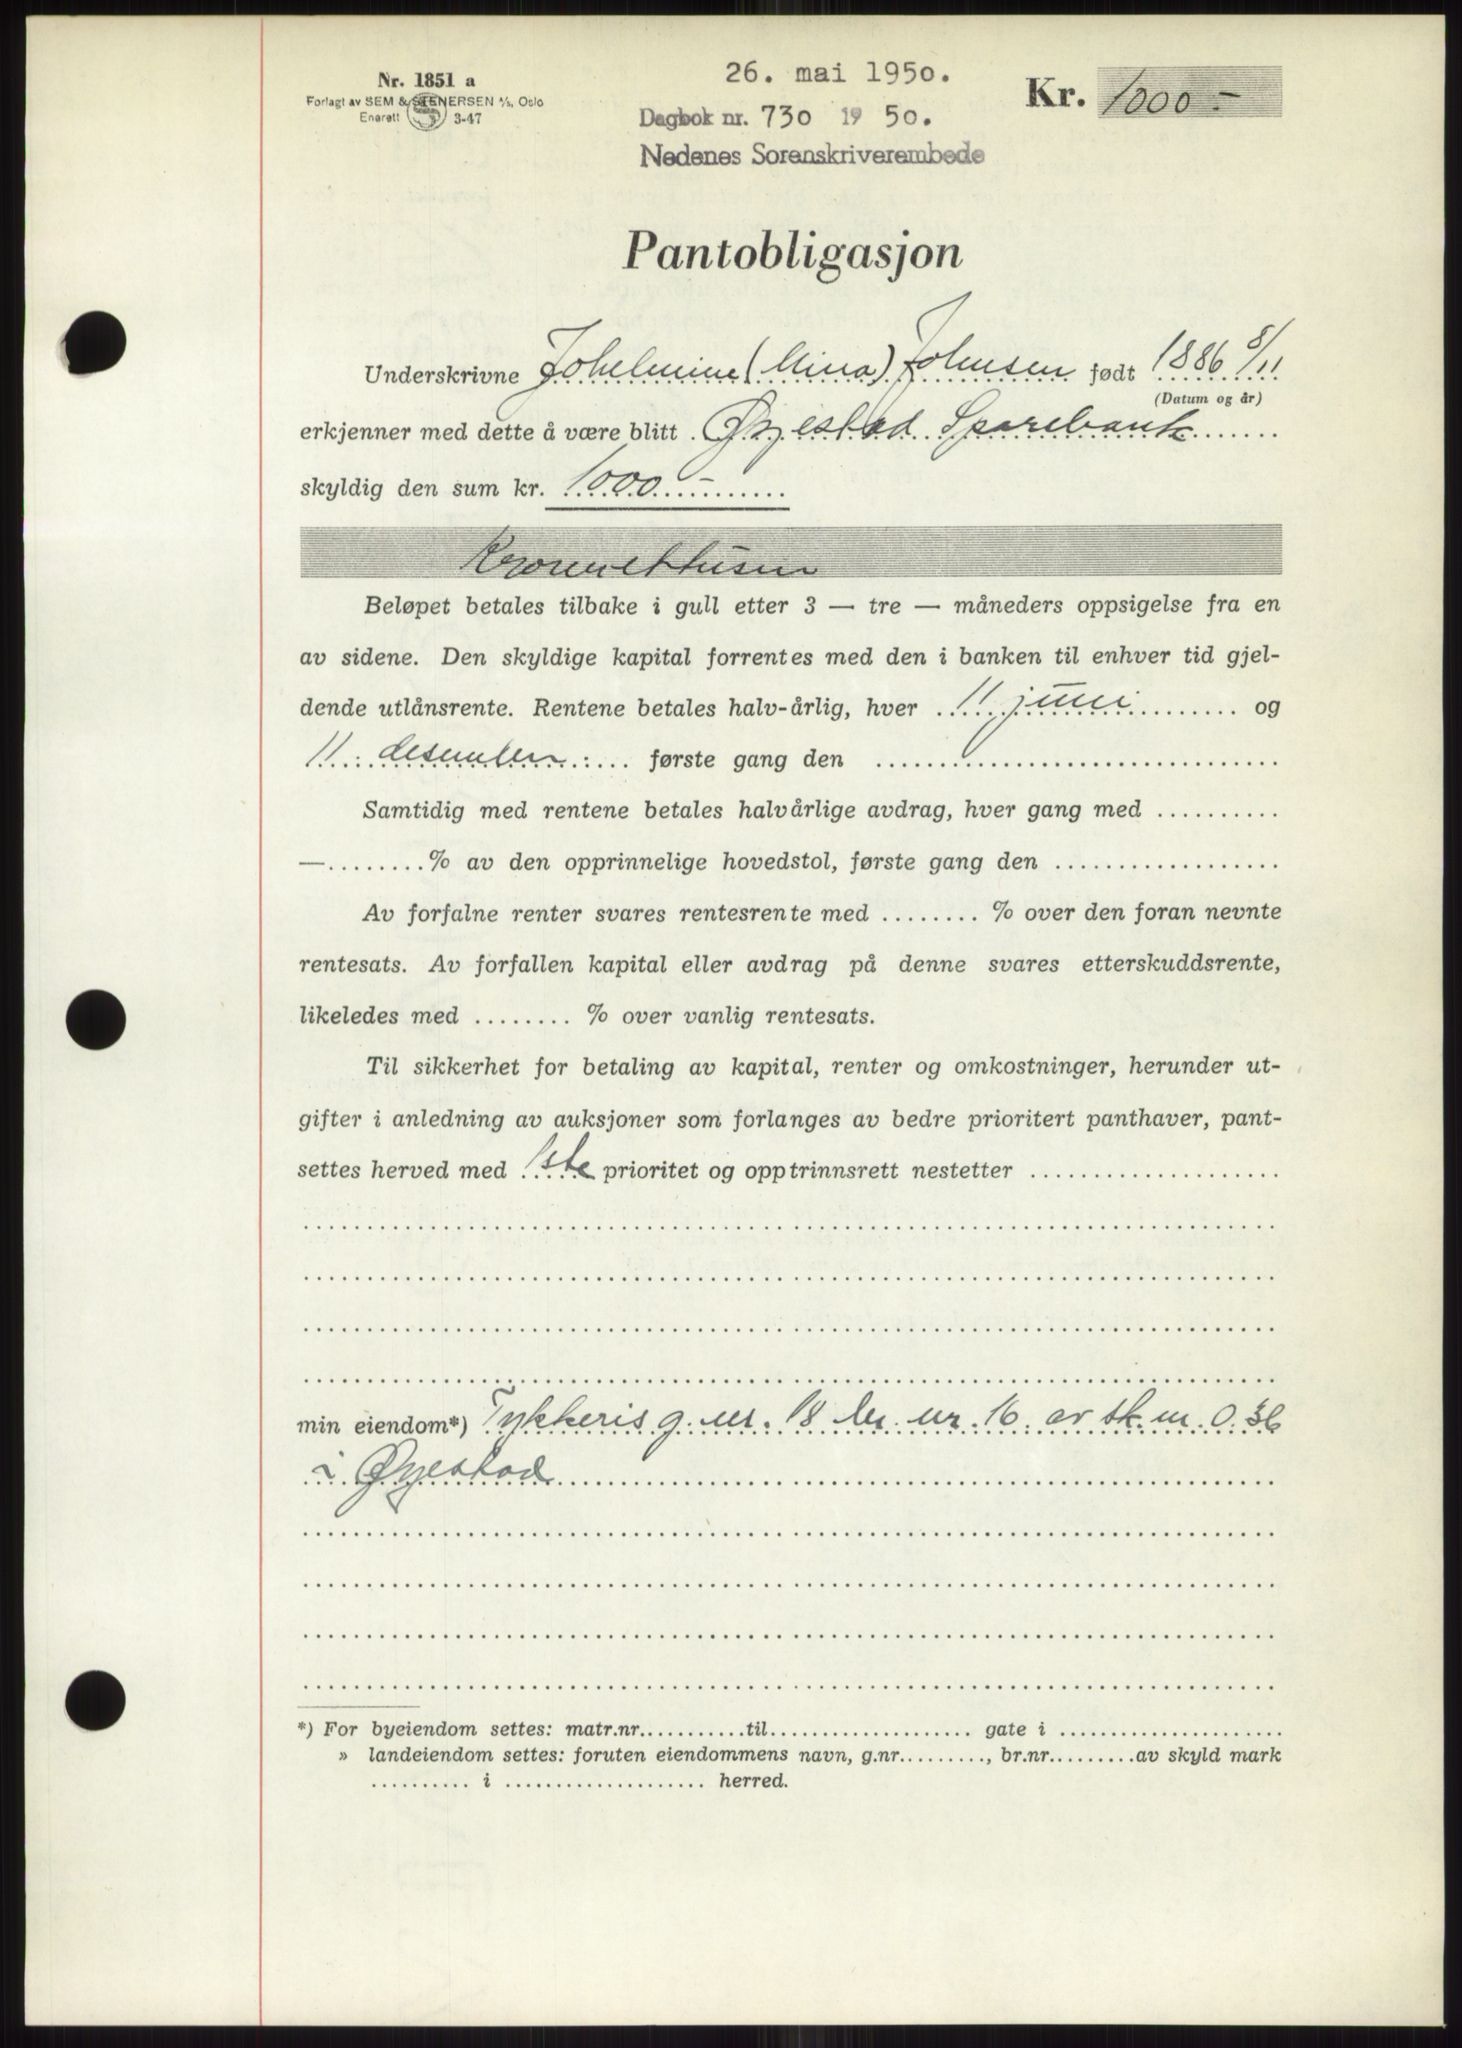 Nr. 1851 a
Forlagt av SEM & STENERSEN A/S, Oslo
Enerett 3-47
26. mai 1950.
Dagbok nr. 730 19 50.
Nedenes Sorenskriverembede
Kr. 1000 -
Pantobligasjon
Underskrivne Johelmine (Mina) Johnsen født 1886 8/11
(Datum og år)
erkjenner med dette å være blitt Øyestad Sparebank
skyldig den sum kr. 1000 -
Kroneretttusen
Beløpet betales tilbake i gull etter 3 — tre — måneders oppsigelse fra en
av sidene. Den skyldige kapital forrentes med den i banken til enhver tid gjel-
dende utlånsrente. Rentene betales halv-årlig, hver 11 juni og
11. desember første gang den
Samtidig med rentene betales halvårlige avdrag, hver gang med
— % av den opprinnelige hovedstol, første gang den
Av forfalne renter svares rentesrente med ........ % over den foran nevnte
rentesats. Av forfallen kapital eller avdrag på denne svares etterskuddsrente,
likeledes med ........ % over vanlig rentesats.
Til sikkerhet for betaling av kapital, renter og omkostninger, herunder ut-
gifter i anledning av auksjoner som forlanges av bedre prioritert panthaver, pant-
settes herved med 1ste prioritet og opptrinnsrett nestetter
min eiendom*) Tykkeris g. nr. 18 br. nr. 16 av sk. m. 0.36
i Øyestad
*) For byeiendom settes: matr.nr...........til.................... gate i ......................
» landeiendom settes: foruten eiendommens navn, g.nr........., br.nr.........av skyld mark
.......... i .................... herred.